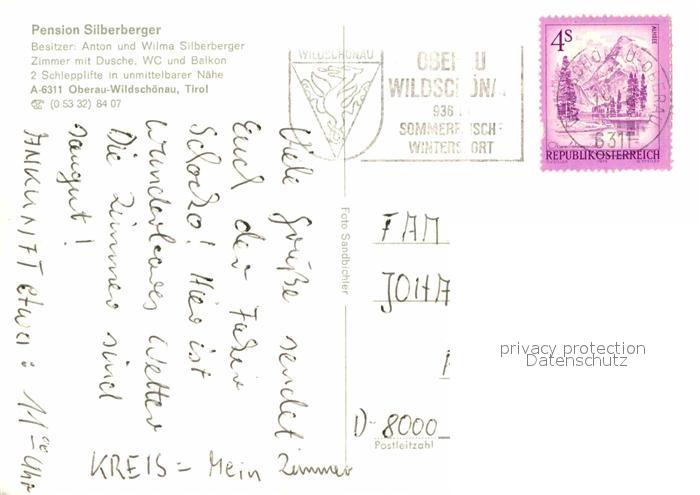 Pension Silberberger
Besitzer: Anton und Wilma Silberberger
Zimmer mit Dusche, WC und Balkon
2 Schlepplifte in unmittelbarer Nähe
A-6311 Oberau-Wildschönau, Tirol
☎ (0 53 32) 84 07
Viele Grüße sendet
Euch der
Hier ist
wunderbares Wetter
Die Zimmer sind
saugut!
ANKUNFT etwa: 11⁰⁰ Uhr
KREIS = Mein Zimmer
Foto Sandbichler
WILDSCHÖNAU
OBERAU
WILDSCHÖNA
936
SOMMERFRISCHE
WINTERSPORT
4S
ALMSEE
REPUBLIK ÖSTERREICH
6311
FAM
JOHA
D-8000
Postleitzahl
privacy protection
Datenschutz